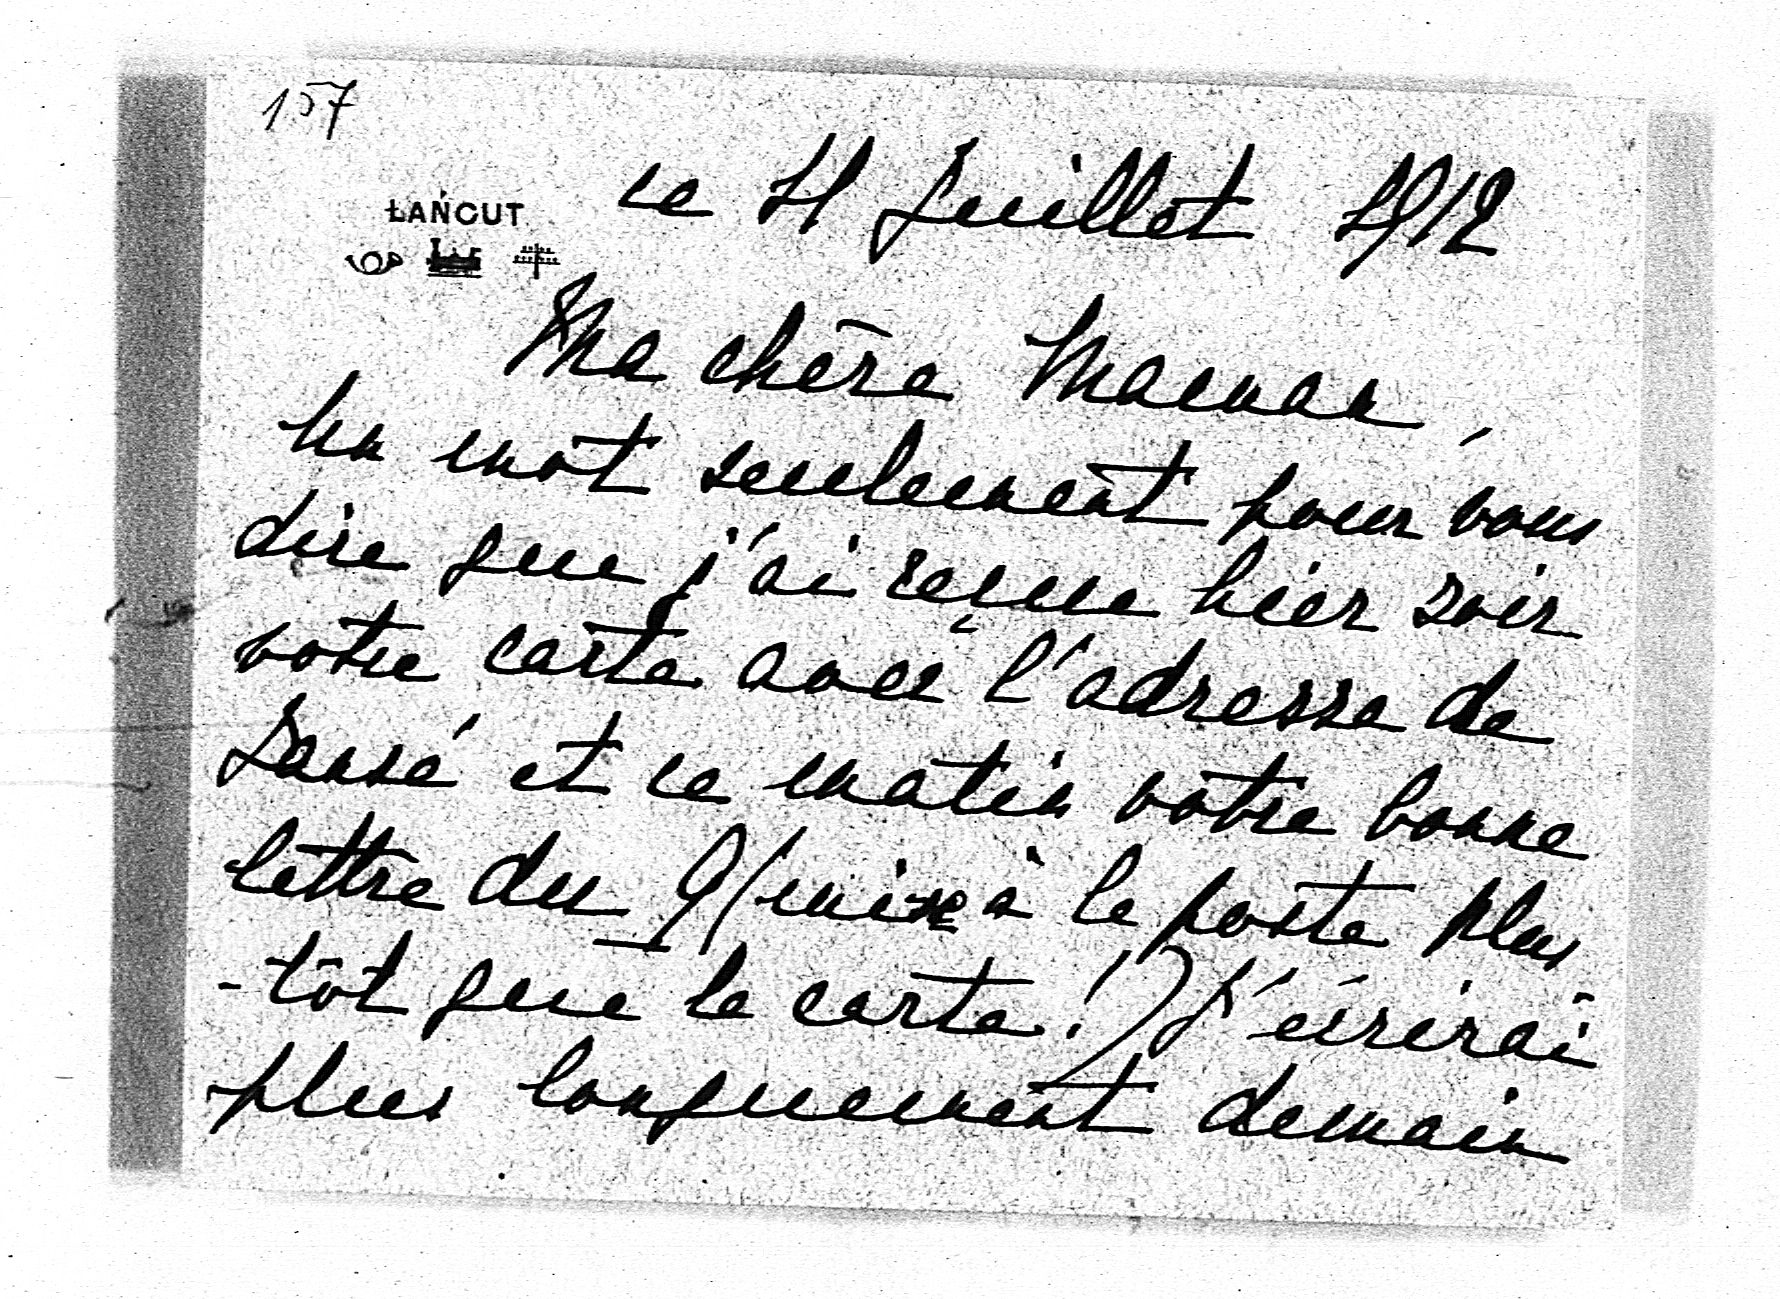 157
ŁAŃCUT
ce 11 Juillet 1912
Ma chère Maman,
Un mot seulement pour vous
dire que j'ai reçue hier soir
votre carte avec l'adresse de
et ce matin votre bonne
lettre du 9 (mise à la poste plus
-tôt que la carte!) J'écrirai
plus longuement demain